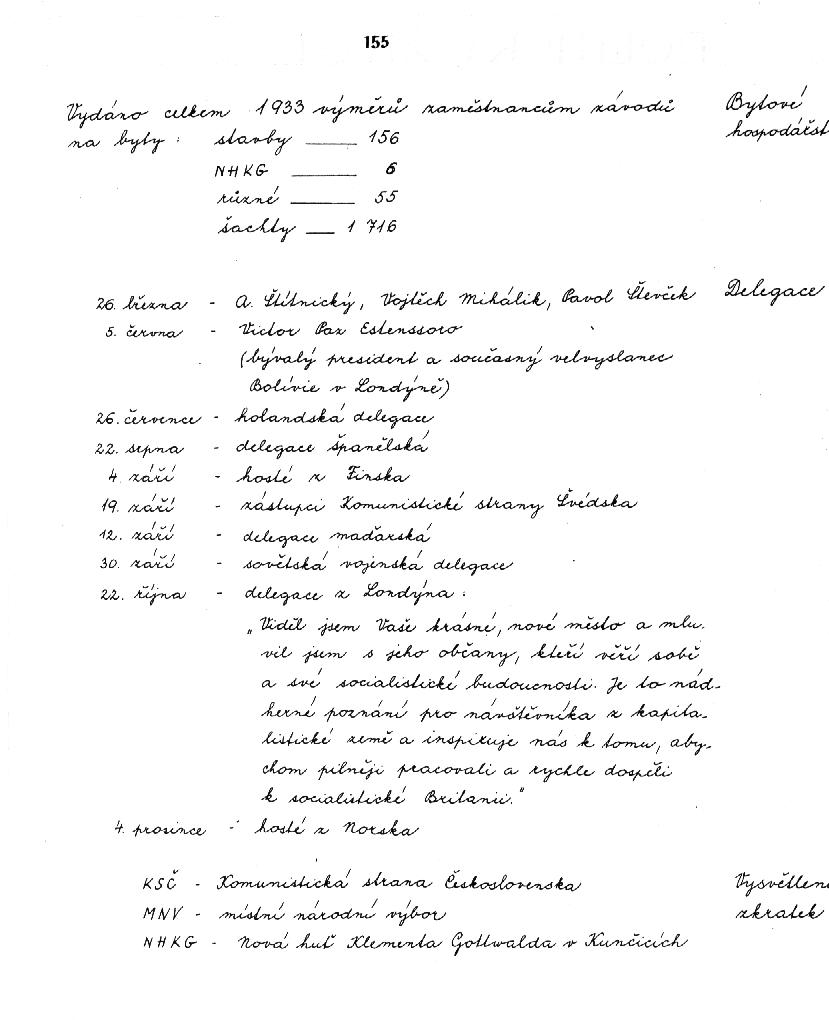 155
Vydáno celkem 1933 výměrů zaměstnancům závodů
Bytové
na byty : stavby 156
hospodářst
NHKG 6
různé 55
šachty 1 716
26. března - A. Štítnický, Vojtěch Mihálik, Pavol Števček
Delegace
5. června - Victor Paz Estenssoro
(bývalý president a současný velvyslanec
Bolívie v Londýně)
26. července - holandská delegace
22. srpna - delegace španělská
4. září - hosté z Finska
19. září - zástupci Komunistické strany Švédska
12. září - delegace maďarská
30. září - sovětská vojenská delegace
22. října - delegace z Londýna :
„Viděl jsem Vaše krásné, nové město a mlu-
vil jsem s jeho občany, kteří věří sobě
a své socialistické budoucnosti. Je to nád-
herné poznání pro návštěvníka z kapita-
listické země a inspiruje nás k tomu, aby-
chom pilněji pracovali a rychle dospěli
k socialistické Britanii."
4. prosince - hosté z Norska
KSČ - Komunistická strana Československa
Vysvětlen
MNV - místní národní výbor
zkratek
NHKG - Nová huť Klementa Gottwalda v Kunčicích